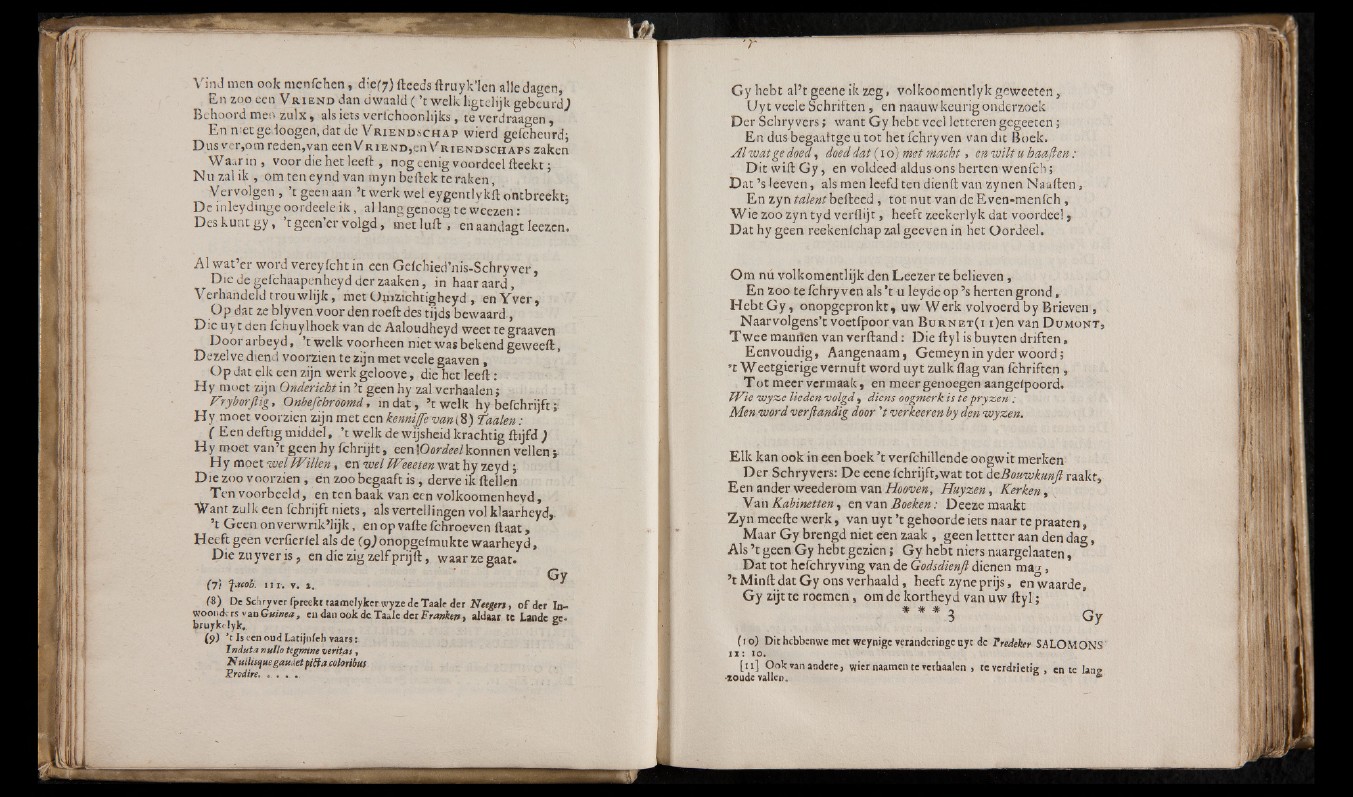 Vind men ook menſchen, die(7) ſteeds ſtruyk'len alle dagen,
En zoo een VRIEND dan dwaald ('t welk ligtelijk gebeurd)
Behoord men zulx, als iets verſchoonlijks, te verdraagen,
En niet gedoogen, dat de VRIENDSCHAP wierd geſcheurd;
Dus ver, om reden, van een VRIEND, en VRIENDSCHAPS zaken
Waar in, voor die het leeſt, nog eenig voordeel ſteekt;
Nu zal ik, om ten eynd van myn beſtek te raken,
Vervolgen, 't geen aan 't werk wel eygentlykſt ontbreekt;
De inleydinge oordeele ik, al lang genoeg te weezen:
Des kunt gy, 't geen'er volgd, met luſt, en aandagt leezen.
Al wat'er word vereyſcht in een Geſchied'nis-Schryver,
Die de geſchaapenheyd der zaaken, in haar aard,
Verhandeld trouwlijk, met Omzichtigheyd, en Yver,
Op dat ze blyven voor den roeſt des tijds bewaard,
Die uyt den ſchuylhoek van de Aaloudheyd weet te graaven
Door arbeyd, 't welk voorheen niet was bekend geweeſt,
Dezelve diend voorzien te zijn met veele gaaven,
Op dat elk een zijn werk geloove, die het leeſt:
Hy moet zijn Ondericht in 't geen hy zal verhaalen;
Vryborſtig, Onbeſchroomd, in dat, 't welk hy beſchrijft;
Hy moet voorzien zijn met een kenniſſe van (8) Taalen:
(Een deftig middel, 't welk de wijsheid krachtig ſtijfd)
Hy moet van't geen hy ſchrijft, een Oordeel konnen vellen;
Hy moet wel Willen, en wel Weeeten wat hy zeyd;
Die zoo voorzien, en zoo begaaft is, derve ik ſtellen
Ten voorbeeld, en ten baak van een volkoomenheyd,
Want zulk een ſchrijft niets, als vertellingen vol klaarheyd,
't Geen onverwrik'lijk, en op vaſte ſchroeven ſtaat,
Heeft geen verſierſel als de (9) onopgeſmukte waarheyd,
Die zuyver is, en die zig zelf prijſt, waar ze gaat.
Gy
(7) Jacob. III. v. 2.
(8) De Schryver ſpreekt taamelyker wyze de Taale der Neegers, of der In-
woonders van Guinea, en dan ook de Taale der Franken, aldaar te Lande ge-
bruykelyk.
(9) 't Is een oud Latijnſch vaars:
Induta nullo tegmine veritas,
Nulliſque gaudet picta coloribus
Prodire. . . . .
Gy hebt al't geene ik zeg, volkoomentlyk geweeten,
Uyt veele Schriften, en naauwkeurig onderzoek
Der Schryvers; want Gy hebt veel letteren gegeeten;
En dus begaaftge u tot het ſchryven van dit Boek.
Al wat ge doed, doed dat (10) met macht, en wilt u haaſten:
Dit wiſt Gy, en voldeed aldus ons herten wenſch;
Dat 's leeven, als men leefd ten dienſt van zynen Naaſten,
En zyn talent beſteed, tot nut van de Even-menſch,
Wie zoo zyn tyd verſlijt, heeft zeekerlyk dat voordeel,
Dat hy geen reekenſchap zal geeven in het Oordeel.
Om nu volkomentlijk den Leezer te believen,
En zoo te ſchryven als 't u leyde op 's herten grond,
Hebt Gy, onopgepronkt, uw Werk volvoerd by Brieven,
Naarvolgens't voetſpoor van BURNET(11)en van DUMONT,
Twee mannen van verſtand: Die ſtyl is buyten driften,
Eenvoudig, Aangenaam, Gemeyn in yder woord;
't Weetgierige vernuft word uyt zulk ſlag van ſchriften,
Tot meer vermaak, en meer genoegen aangeſpoord.
Wie wyze lieden volgd, diens oogmerk is te pryzen:
Men word verſtandig door 't verkeeren by den wyzen.
Elk kan ook in een boek 't verſchillende oogwit merken
Der Schryvers: De eene ſchrijft, wat tot de Bouwkunſt raakt,
Een ander weederom van Hooven, Huyzen, Kerken,
Van Kabinetten, en van Boeken: Deeze maakt
Zyn meeſte werk, van uyt 't gehoorde iets naar te praaten,
Maar Gy brengd niet een zaak, geen lettter aan den dag,
Als 't geen Gy hebt gezien; Gy hebt niets naargelaaten,
Dat tot beſchryving van de Godsdienſt dienen mag,
't Minſt dat Gy ons verhaald, heeft zyne prijs, en waarde,
Gy zijt te roemen, om de kortheyd van uw ſtyl;
* * * 3 Gy
(10) Dit hebben we met weynige veranderinge uyt de Predeker SALOMONS
IX: 10.
[11] Ook van andere, wier naamen te verhaalen, te verdrietig, en te lang
zoude vallen.